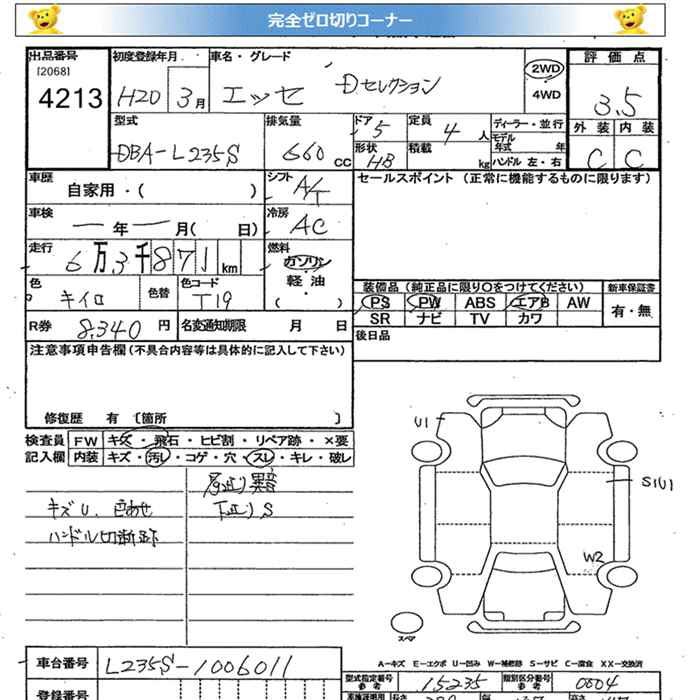 完全ゼロ切りコーナー
出品番号 初度登録年月 車名・グレード 評価点
[2068]
4213 H20 3月 エッセ Dセレクション 2WD 3.5
4WD
型式 排気量 ドア 定員 ディーラー・並行 外装 内装
モデル年式 年
DBA-L235S 660cc 5 4人 C C
形状 積載 ハンドル 左・右
HB kg
車歴 シフト セールスポイント (正常に機能するものに限ります)
自家用・( ) A/T
車検 冷房
ー年ー月( 日) AC
走行 燃料
6万3千871km ガソリン
軽油
( )
色 色替 色コード 装備品(純正品に限り○をつけてください) 新車保証書
キイロ T19 PS PW ABS エアB AW 有・無
SR ナビ TV カワ
R券 8,340円 名変通知期限 月 日 後日品
注意事項申告欄(不具合内容等は具体的に記入して下さい)
修復歴 有 〔箇所 〕
検査員 FW キズ・飛石・ヒビ割・リペア跡・×要
記入欄 内装 キズ・汚レ・コゲ・穴・スレ・キレ・破レ
キズU、色あせ
ハンドル切断跡
下廻りS
U1
S1U1
W2
スペア
A-キズ E-エクボ U-凹み W-補修跡 S-サビ C-腐食 XX-交換済
車台番号 L235S-1006011
型式指定番号 15235 類別区分番号 0004
参考 参考
登録番号